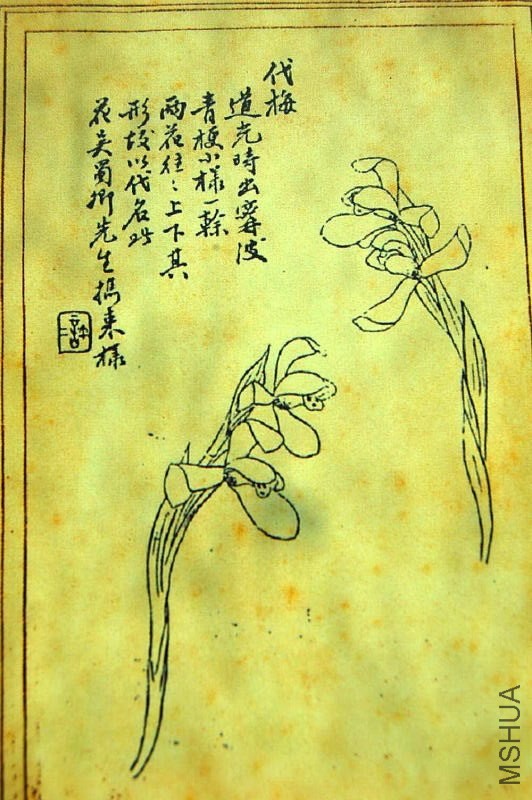 代梅
道光時出寧波
青梗小樣一幹
兩花往々上下其
形故以代名此
花吳蜀卿先生攜來樣
MSHUA